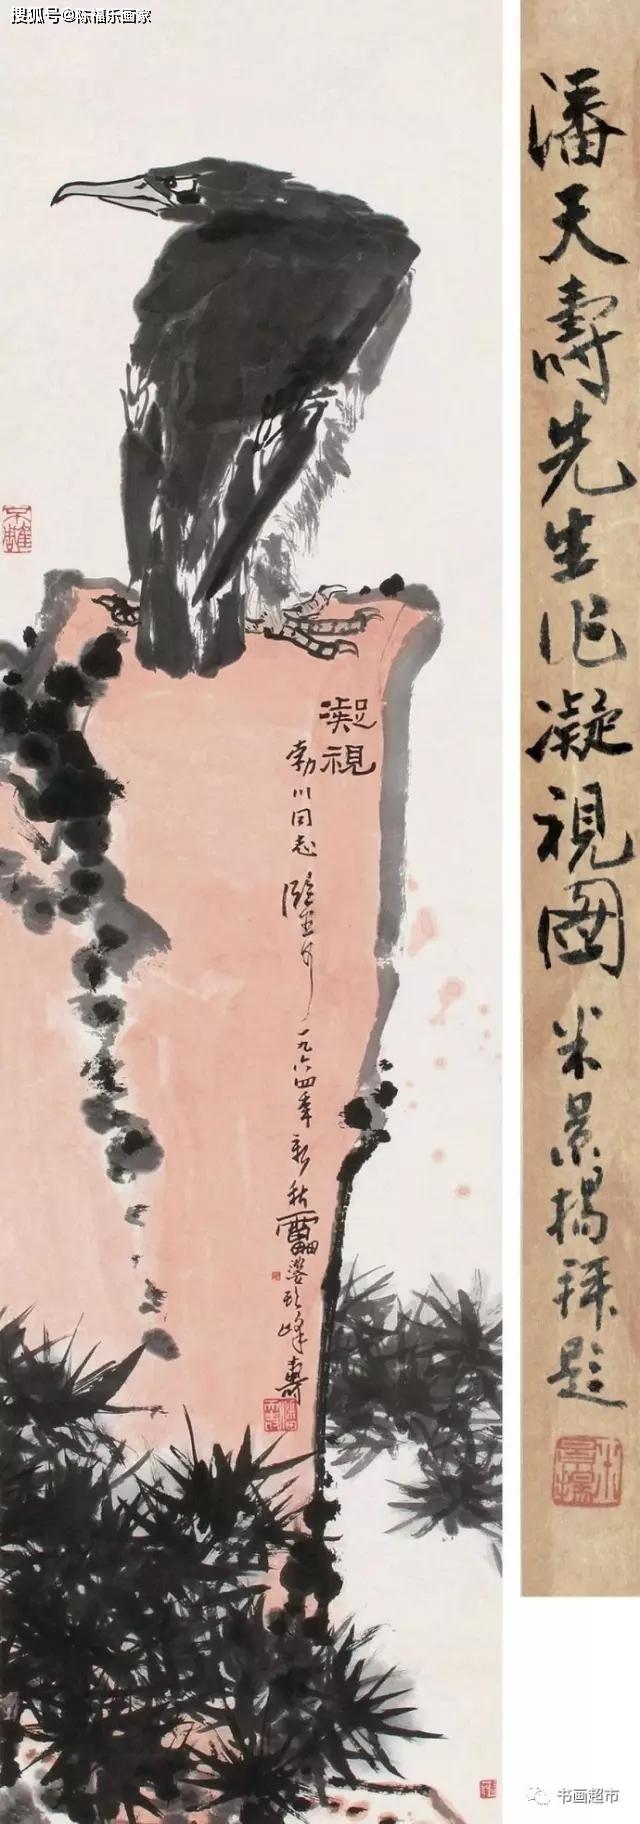 搜狐号@陈福乐画家
凝視
勃川同志
一九六四年新秋雷婆頭峰壽
潘天壽先生作凝視圖 米景揚拜題
米景揚
书画超市